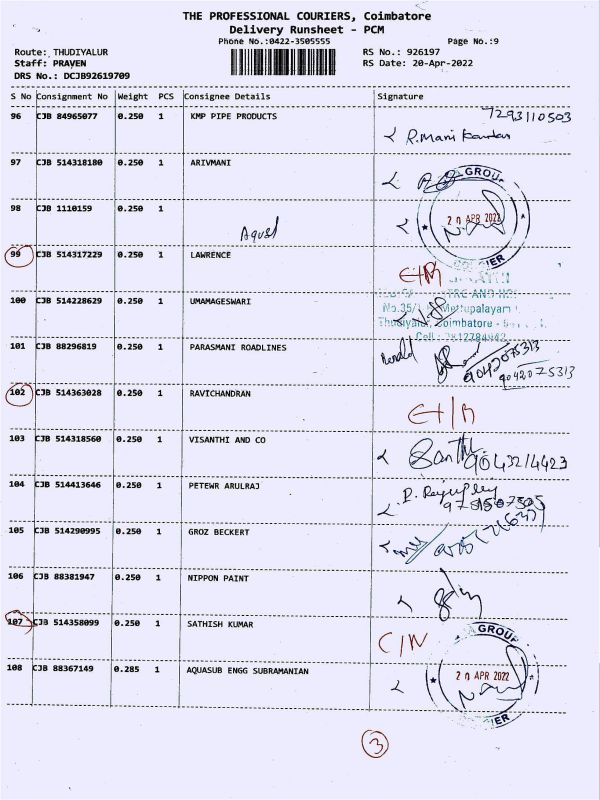 THE PROFESSIONAL COURIERS, Coimbatore
Delivery Runsheet - PCM
Phone No.:0422-3505555
Page No.:9
Route: THUDIYALUR
RS No.: 926197
Staff: PRAVEN
RS Date: 20-Apr-2022
DRS No.: DCJB92619709
S No Consignment No Weight PCS Consignee Details Signature
96 CJB 84965077 0.250 1 KMP PIPE PRODUCTS 7293110503
R.Mani
97 CJB 514318180 0.250 1 ARIVMANI
GROUP
98 CJB 1110159 0.250 1
20 APR 2022
99 CJB 514317229 0.250 1 LAWRENCE
100 CJB 514228629 0.250 1 UMAMAGESWARI
No.35/ Mettupalayam
Thudiyalur, Coimbatore -
Cell :
101 CJB 88296819 0.250 1 PARASMANI ROADLINES
9042075313
9042075313
102 CJB 514363028 0.250 1 RAVICHANDRAN
103 CJB 514318560 0.250 1 VISANTHI AND CO
104 CJB 514413646 0.250 1 PETEWR ARULRAJ
105 CJB 514290995 0.250 1 GROZ BECKERT
106 CJB 88381947 0.250 1 NIPPON PAINT
107 CJB 514358099 0.250 1 SATHISH KUMAR
GROUP
108 CJB 88367149 0.285 1 AQUASUB ENGG SUBRAMANIAN
20 APR 2022
3